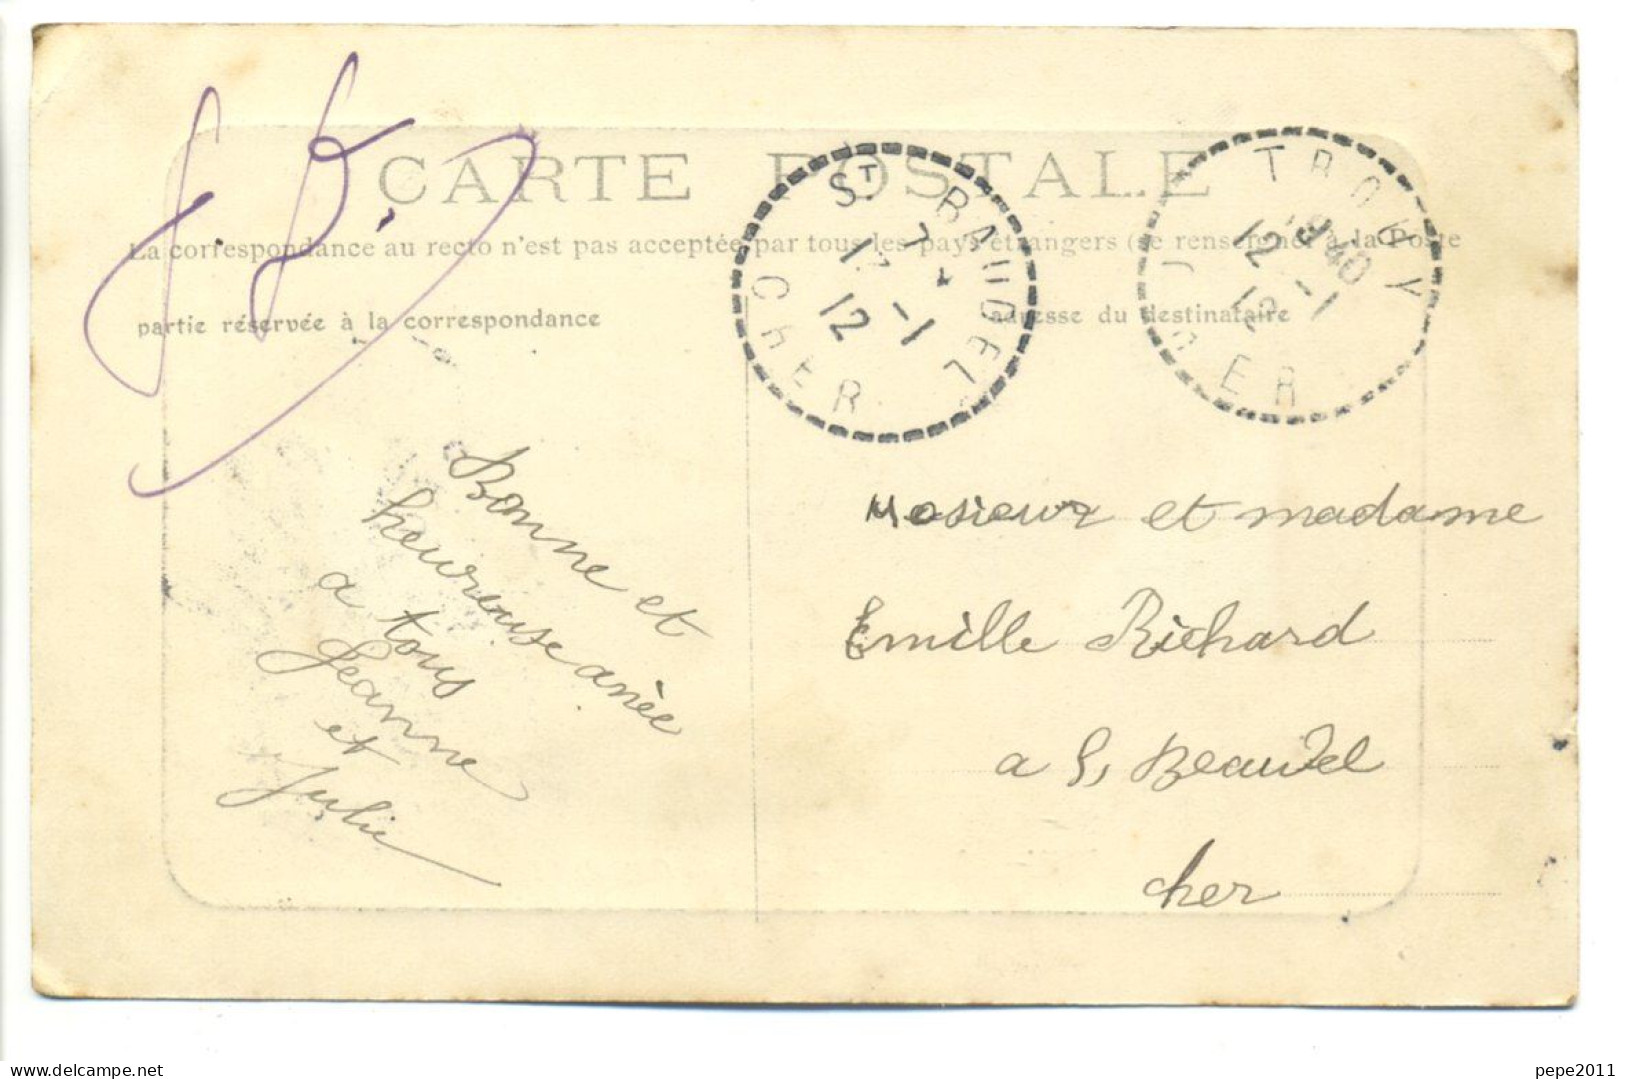 CARTE POSTALE
La correspondance au recto n'est pas acceptée par tous les pays étrangers (se renseigner à la Poste
partie réservée à la correspondance
adresse du destinataire
ST BAUDEL
12 -1
12
CHER
TROUY
19 40
12 -1
12
CHER
Bonne et
heureuse anèe
a tous
Jeanne
et
Julie
Mosieur et madame
Emille Richard
a S, Beaudel
cher
pepe2011